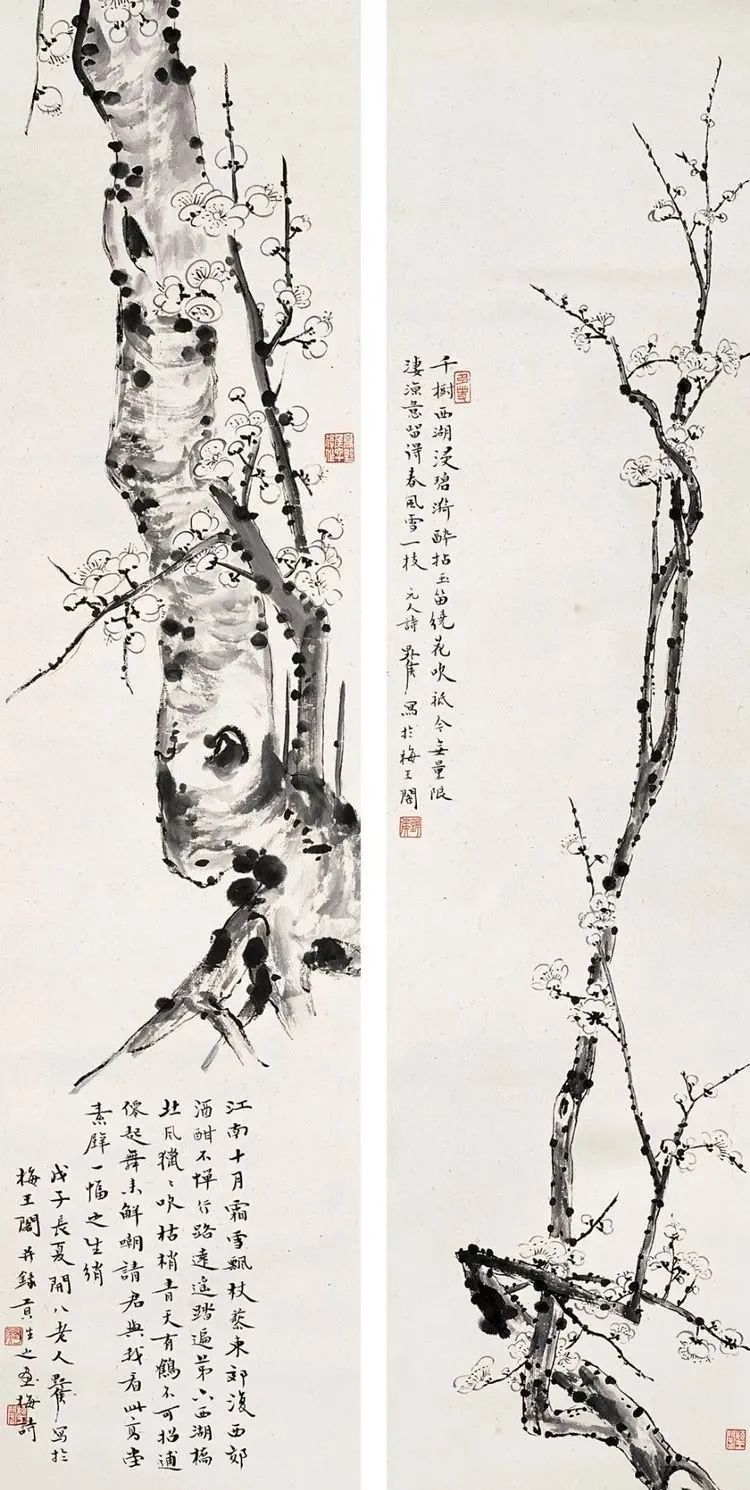 千樹西湖浸碧漪醉拈玉笛繞花吹祇今無量限
淒涼意留得春風雪一枝 元人詩 野侯寫於梅王閣
江南十月霜雪飄杖藜東郊復西郊
酒酣不憚行路遠遙踏遍第六西湖橋
北風獵〻吹枯梢青天有鶴不可招逋
僊起舞未解嘲請君與我看此高堂
素壁一幅之生綃
戊子長夏閒八老人野侯寫於
梅王閣并錄生之畫梅詩